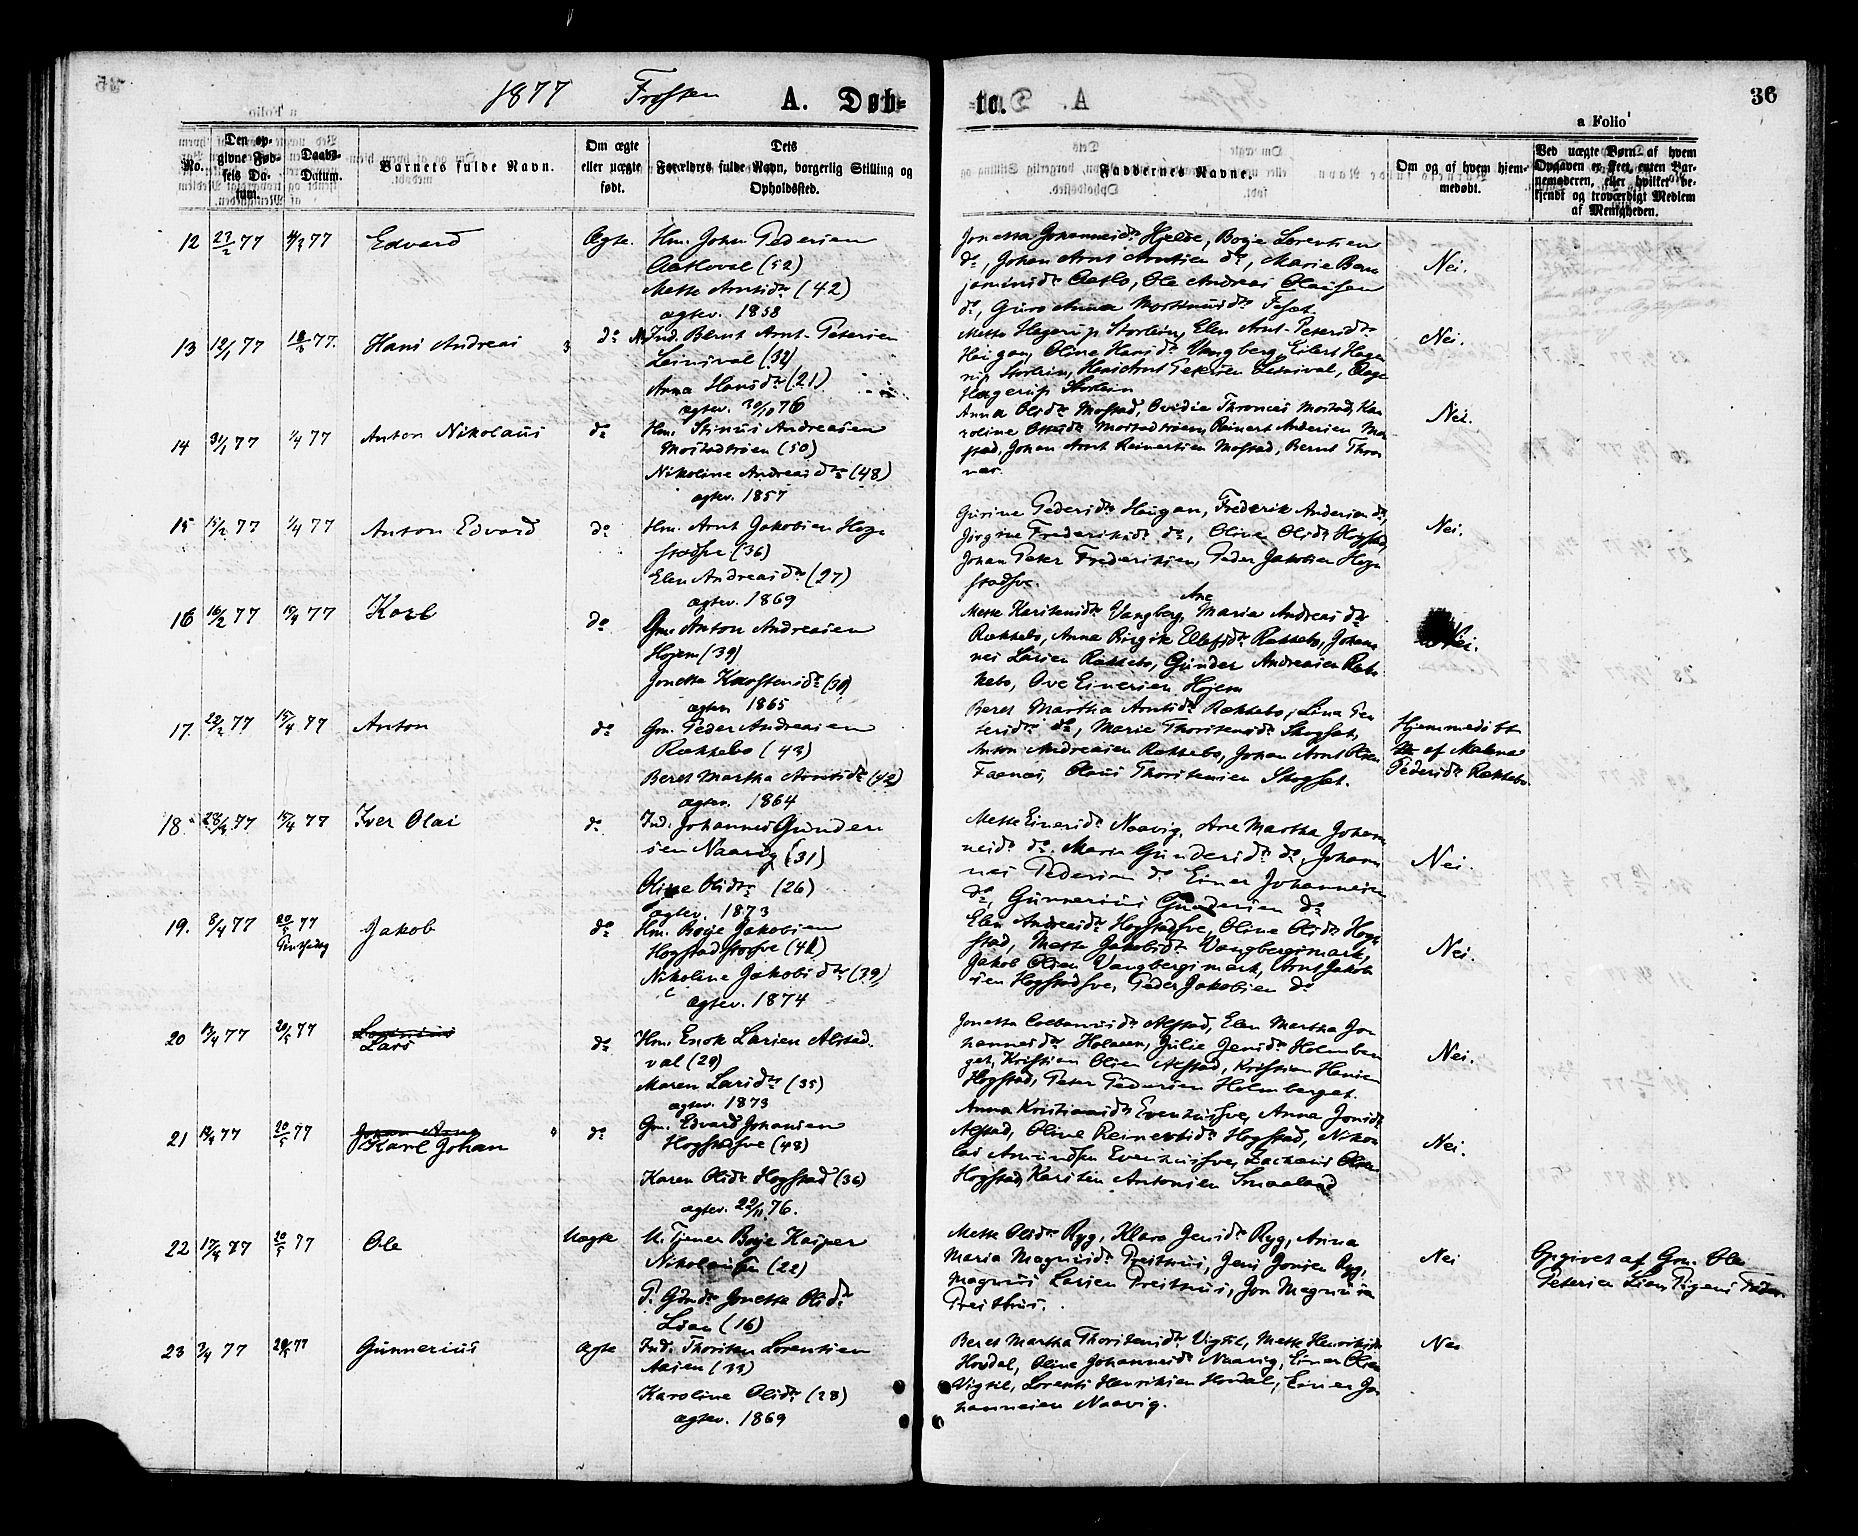 1877 Frosten A. Døb-
te. 36
a Folio
No.
Den op-
givne Fød-
sels Da-
tum.
Daabs-
Datum.
Barnets fulde Navn.
Om ægte
eller uægte
født.
Dets
Forældres fulde Navn, borgerlig Stilling og
Opholdssted.
Faddernes Navne.
Om og af hvem hjem-
medøbt.
Ved uægte Børn af hvem
Opgaven er skeet, enten Bar-
nemoderen, eller hvilket be-
kjendt og troværdigt Medlem
af Menigheden.
12 27/2 77 4/3 77 Edvard Ægte. Hm. John Pedersen
(52)
Mette Arntsdr (42)
ægtev. 1858
Jonetta Johannesdr Hjelde, Boye Lorentsen
do, Johan Arnt Arntsen do, Marie Ben
jaminsdr Aatlo, Ole Andreas Olausen
do, Guro Anna
Nei.
13 12/1 77 18/3 77. Hans Andreas do Ind. Bernt Arnt Petersen
Leinsval (32)
Anna Hansdr (21)
ægtev. 30/10 76
Mette Hagerup Storlein, Elen Arnt-Petersdr
Haugan, Oline Hansdr Vangberg, Eilert Hage
rup Storlein, Hans Arnt Petersen Leinsval, Aage
Hagerup Storlein
Nei.
14 31/1 77 1/4 77 Anton Nikolaus do Hm. Stinus Andreasen
Mostadtrøen (50)
Nikoline Andreasdr (48)
ægtev. 1857
Anna Olsdr Mostad, Ovidie Thrones Mostad, Ka
roline Ottesdr Mostadtrøen, Reinert Andersen Mo
stad, Johan Arnt Reinertsen Mostad, Bernt Thro
nes.
Nei.
15 15/2 77 1/4 77 Anton Edvard do Hm. Arnt Jakobsen Hog
stadsve (36)
Elen Andreasdr (27)
ægtev. 1869
Gurine Pedersdr Haugan, Frederik Andersen do,
Jørgine Frederiksdr do, Oline Olsdr Hogstad,
Johan Peter Frederiksen, Peder Jakobsen Hog
stadsve.
Nei.
16 16/2 77 15/4 77 Karl do Gm. Anton Andreasen
Højem (39)
Jonetta Karstensdr (30)
ægtev. 1865
Ane
Mette Karstensdr Vangberg, Maria Andreasdr
Rakkebo, Anna Birgit Ellefsdr Rakkebo, Johan
nes Larsen Rakkebo, Gunder Andreasen Rak
kebo, Ove Einersen Højem
Nei.
17. 22/2 77 15/4 77 Anton do Gm. Peder Andreasen
Rakkebo (43)
Beret Martha Arntsdr (42)
ægtev. 1864
Beret Martha Arntsdr Rakkebo, Lina Pe
tersdr do, Marie Thorstensdr Skogset,
Anton Andreasen Rakkebo, Johan Arnt Olsen
Faanes, Olaus Thorstensen Skogset.
Hjemmedøbt
af Malena
Pedersdr Rakkebo
18. 28/2 77 15/4 77 Iver Olai do Ind. Johannes Gunder
sen Naavig (31)
Oline Olsdr (26)
ægtev. 1873
Mette Einersdr Naavig, Ane Martha Johan
nesdr do, Maria Gundersdr do, Johan
nes Pedersen do, Einer Johannesen
do, Gunnerius Gundersen do
Nei.
19. 8/4 77 20/5 77
Pintsedag Jakob do Hm. Boye Jakobsen
Hogstadsve (41)
Nikoline Jakobsdr (39)
ægtev. 1874
Elen Andreasdr Hogstadsve, Oline Olsdr Hog
stad, Mette Jakobsdr Vangbergsmark,
Jakob Olsen Vangbergsmark, Arnt Jakob
sen Hogstadsve, Peder Jakobsen do
Nei.
20 13/4 77 20/5 77
Lars do Hm. Enok Larsen Alstad
val (29)
Maren Larsdr (35)
ægtev. 1873
Jonetta Alstad, Elen Martha Jo
hannesdr Holmen, Julie Jensdr Holmber
get, Kristian Olsen Alstad, Kristian Hansen
Hogstad, Peter Pedersen Holmberget.
Nei.
21 19/4 77 20/5 77
Karl Johan do Gm. Edvard Johansen
Hogstadsve (48)
Karen Olsdr Hogstad (36)
ægtev. 22/11 76.
Anna Kristiansdr Evenhussve, Anna Jonsdr
Alstad, Oline Reinertsdr Hogstad, Nikol
lai Amundsen Evenhussve, Zacharias Olsen
Hogstad, Karsten Antonsen Smaaland
Nei.
22 17/4 77 20/5 77 Ole Uægte U. Tjener Boye Kasper
Nikolaisen (22)
P. Gdmdr Jonetta Olsdr
Lian (16)
Mette Olsdr Ryg, Klara Jensdr Ryg, Anna
Maria Magnusdr Presthus, Jens Jonsen Ryg,
Magnus Larsen Presthus, Jon Magnusen
Presthus.
Nei
Opgivet af Gm. Ole
Petersen Lian Pigens Fader.
23 3/4 77 20/5 77 Gunnerius Ægte Ind. Thorsten Lorentsen
Aasen (33)
Karoline Olsdr (28)
ægtev. 1869
Beret Martha Thorstensdr Vigtil, Mette Henriksdr
Hovdal, Oline Johannesdr Naavig, Einer Olsen
Vigtil, Lorents Henriksen Hovdal, Einer Jo
hannesen Naavig.
Nei